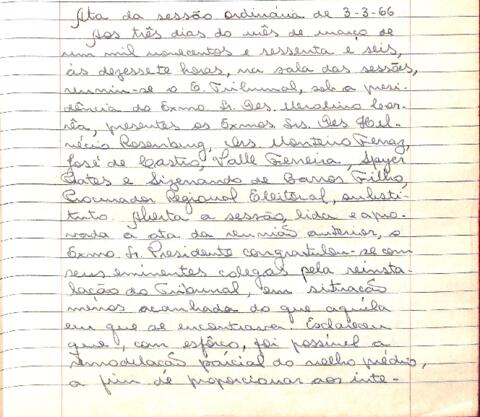 Ata da sessão ordinária de 3-3-66
Aos três dias do mês de março de
um mil novecentos e sessenta e seis,
às dezessete horas, na sala das sessões,
reuniu-se o E. Tribunal, sob a presi-
dência do Exmo. Sr. Des. Merolino Cor-
rêa, presentes os Exmos. Srs. Des. Hel-
vécio Rosenburg, Drs. Monteiro Ferraz,
José de Castro, Valle Ferreira, Spyer
Prates e Sizenando de Barros Filho,
Procurador Regional Eleitoral, substi-
tuto. Aberta a sessão, lida e apro-
vada a ata da reunião anterior, o
Exmo. Sr. Presidente congratulou-se com
seus eminentes colegas pela reinsta-
lação do Tribunal, em situação
menos acanhada do que aquela
em que se encontrava. Esclareceu
que, com esfôrço, foi possível a
remodelação parcial do velho prédio,
a fim de proporcionar aos inte-